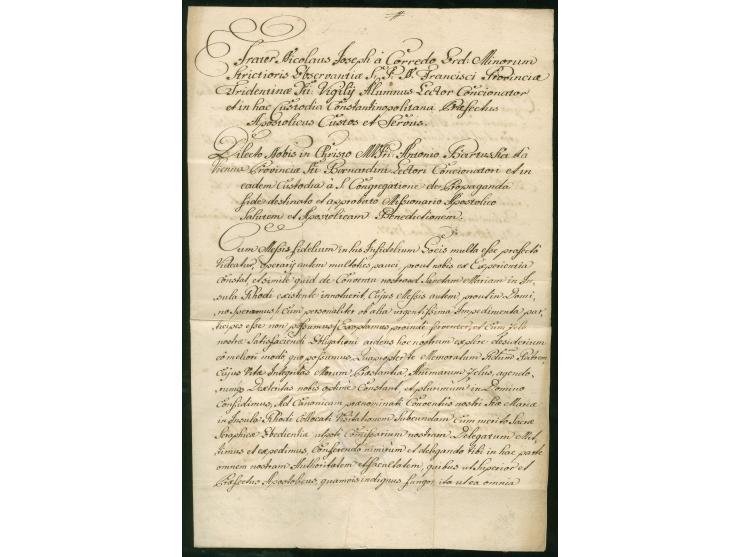 Frater Nicolaus Joseph à Corredo Ord: Minorum
Strictioris Observantiæ S. P. N. Francisci Provinciæ
Tridentinæ Sti: Vigilij Alumnus Lector Concionator
et in hac Custodia Constantinopolitana Præfectus
Apostolicus Custos et Servus.
Dilecto Nobis in Christo Antonio Bartuska da
Vienna Provinciæ Sti Bernardini Lectori Concionatori et in
eadem Custodia à S. Congregatione de Propaganda
fide destinato et approbato Missionario Apostolico
Salutem et Apostolicam Benedictionem.
Cum Messis fidelium in his Infidelium Locis multa esse profecto
Videatur, Operarij autem multoties pauci, prout nobis ex Experientia
Constat, et simile quid de Conventu nostro ad Sanctam Mariam in In,
sula Rhodi existente innotuerit, Cujus Messis autem, prout in Domi,
no Speramus, Cum personaliter ob alia urgentissima Impedimenta par,
ticipes esse non possumus, Exoptamus proinde ferventer, et Cum Zelo
nostræ Satisfaciendi Obligationi ardens hoc nostrum explere desiderium
eo meliori modo, quo possumus. Quapropter te Memoratum Patrem,
Cujus Vitæ Integritas Morum, Præstantia, Animarum Zelus, agendo,
rumq Dexteritas nobis optime Constant, et plurimum in Domino
Confidimus, Ad Canonicam prænominati Conventus nostri Stæ Mariæ
in Insula Rhodi Collocati Visitationem Subeundam Cum merito Sacræ
Seraphicæ Obedientiæ utpoti Comissarium nostrum Delegatum Mit,
timus et expedimus, Conferendo nimirum et delegando tibi in hac parte
omnem nostram Authoritatem et facultatem, quibus ut Superior et
Præfectus Apostolicus, quamvis indignus fungor ita ut ea omnia